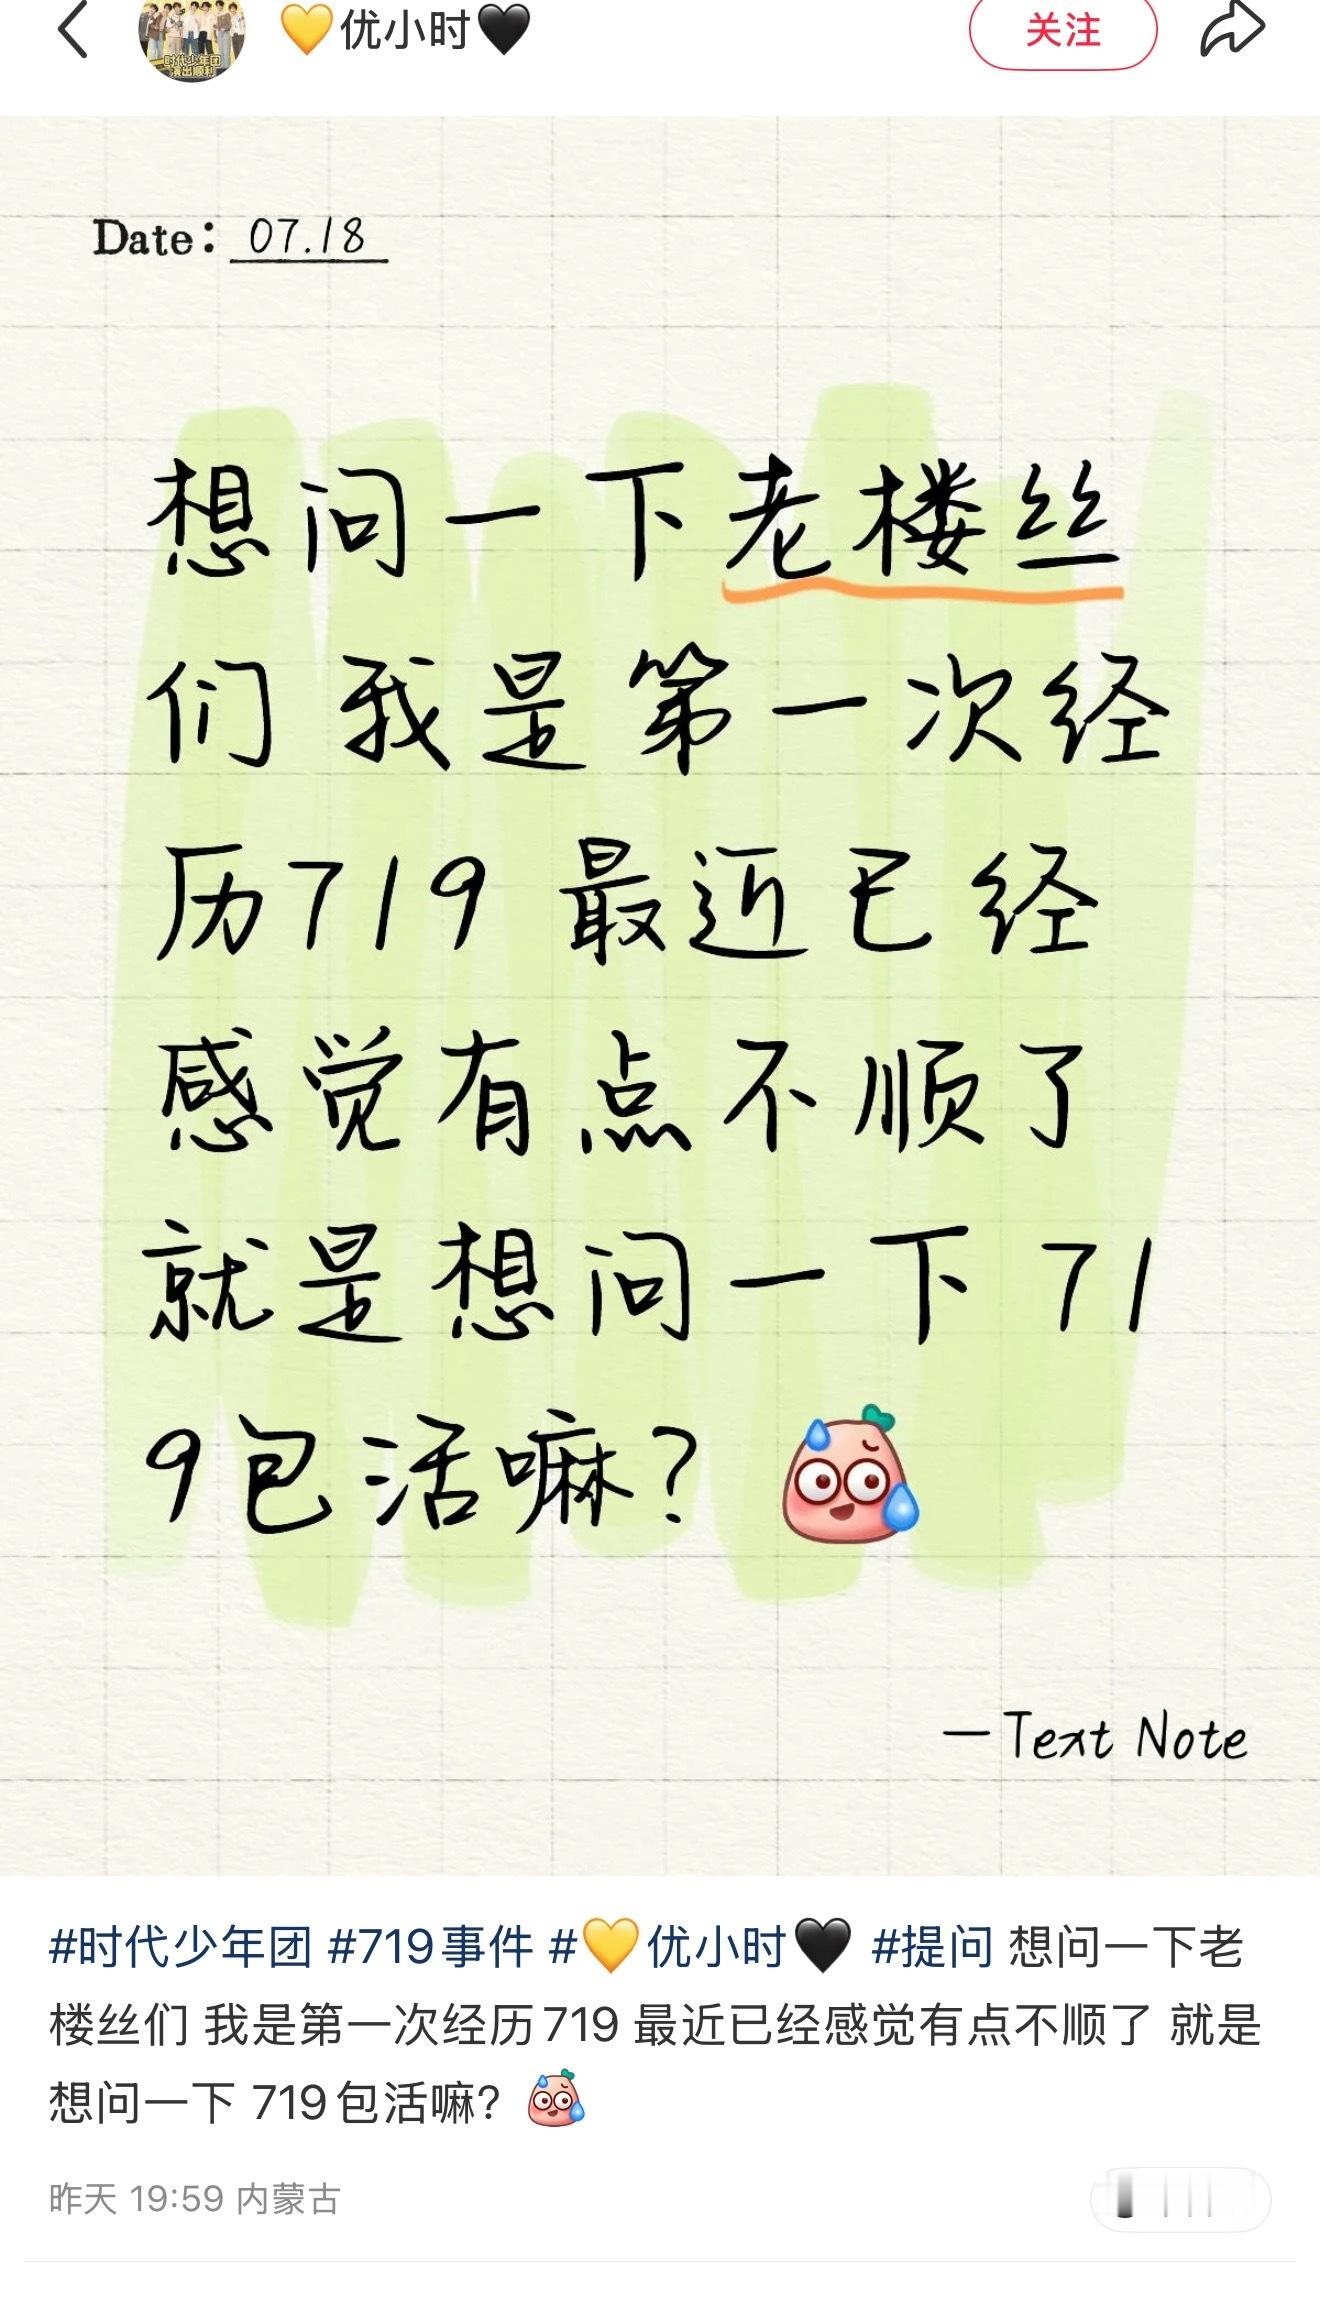 时代少年团
演出顺利
💛优小时🖤
关注
Date: 07.18
想问一下老楼丝
们 我是第一次经
历719 最近已经
感觉有点不顺了
就是想问一下 71
9包活嘛?
—Text Note
#时代少年团 #719事件 #💛优小时🖤 #提问 想问一下老
楼丝们 我是第一次经历719 最近已经感觉有点不顺了 就是
想问一下 719包活嘛?
昨天 19:59 内蒙古